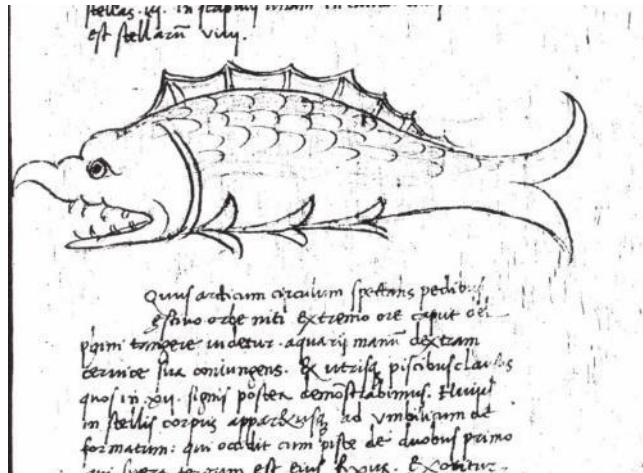 stellas
est stellarū viiij.
Quus arcticum circulum spectans pedib
Estivo orbe niti extremo ore caput del
phini tangere videtur. aquarij manū dextram
cervice sua coniungens. & utrisq piscibus clausus
quos in xij. signis postea demōstrabimus. Huius
in stellis corpus apparet usq ad umbilicum de
formatum: qui occidit cum pisce de duobus primo
terram est eius Exoritur